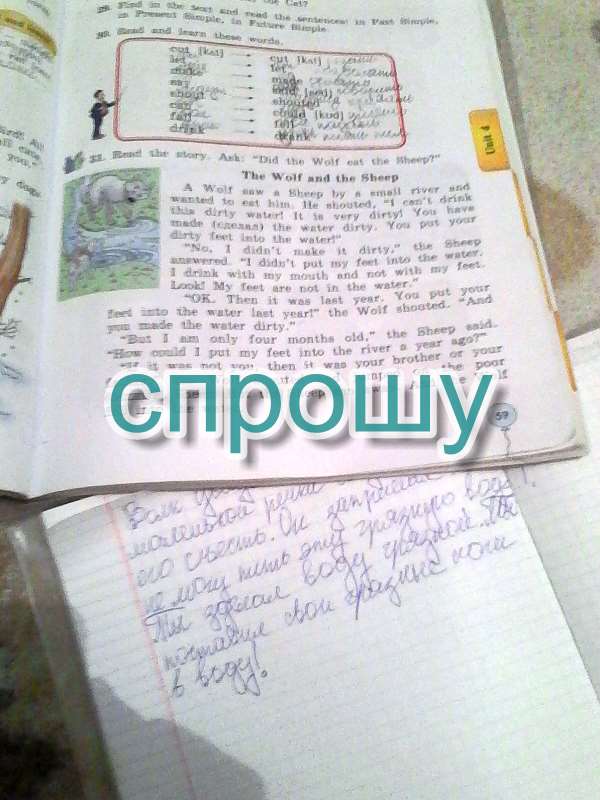 29. Find in the text and read the sentences: in Past Simple,
in Present Simple, in Future Simple.
30. Read and learn these words.
cut [kʌt] cut [kʌt]
let let
make made
say said [sed]
shout shouted
can could [kud]
fall fell
drink drank
Unit 4
31. Read the story. Ask: "Did the Wolf eat the Sheep?"
The Wolf and the Sheep
A Wolf saw a Sheep by a small river and
wanted to eat him. He shouted, "I can't drink
this dirty water! It is very dirty! You have
made (сделал) the water dirty. You put your
dirty feet into the water!"
"No, I didn't make it dirty," the Sheep
answered. "I didn't put my feet into the water.
I drink with my mouth and not with my feet.
Look! My feet are not in the water."
"OK. Then it was last year. You put your
feet into the water last year!" the Wolf shouted. "And
you made the water dirty."
"But I am only four months old," the Sheep said.
"How could I put my feet into the river a year ago?"
"If it was not you then it was your brother or your
the poor
спрошу
59
Волк
маленькой речки
его съесть. Он
не могу пить эту грязную воду!
Ты сделал воду грязной. Ты
поставил свои грязные ноги
в воду!